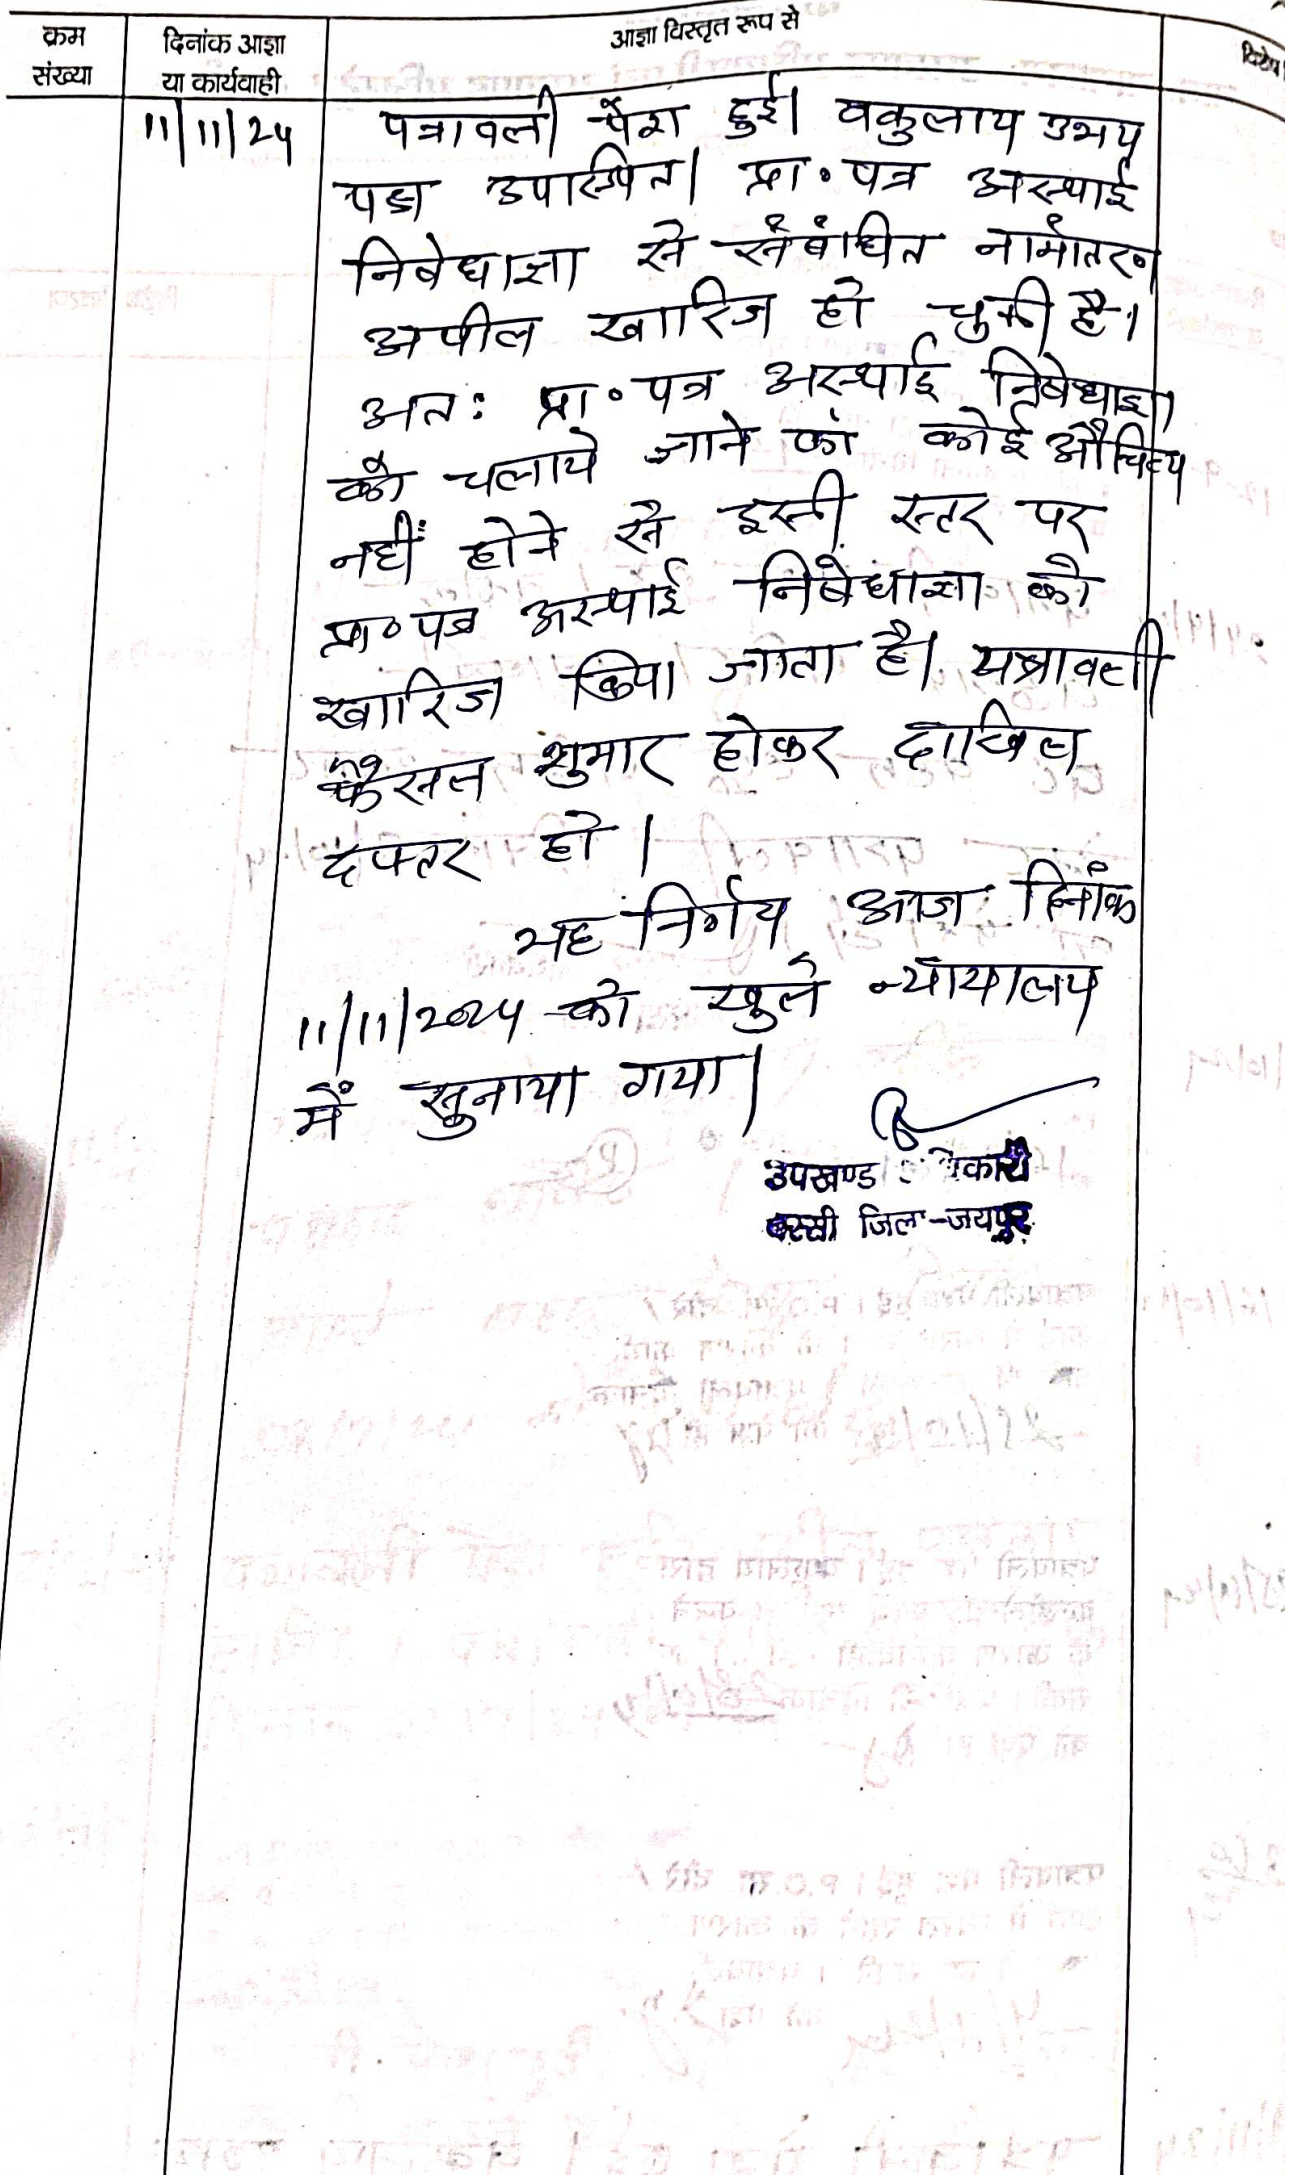 क्रम संख्या
दिनांक आज्ञा या कार्यवाही
आज्ञा विस्तृत रूप से
11/11/24
पत्रावली पेश हुई। वकुलाय उभय
पक्ष उपस्थित। प्रा॰ पत्र अस्थाई
निषेधाज्ञा से संबंधित नामांतरण
अपील खारिज हो चुकी है।
अतः प्रा॰ पत्र अस्थाई निषेधाज्ञा
को चलाये जाने का कोई औचित्य
नहीं होने से इसी स्तर पर
प्रा॰ पत्र अस्थाई निषेधाज्ञा को
खारिज किया जाता है। पत्रावली
फैसल शुमार होकर दाखिल
दफ्तर हो।
यह निर्णय आज दिनांक
11/11/2024 को खुले न्यायालय
में सुनाया गया।
उपखण्ड
बस्सी जिला-जयपुर